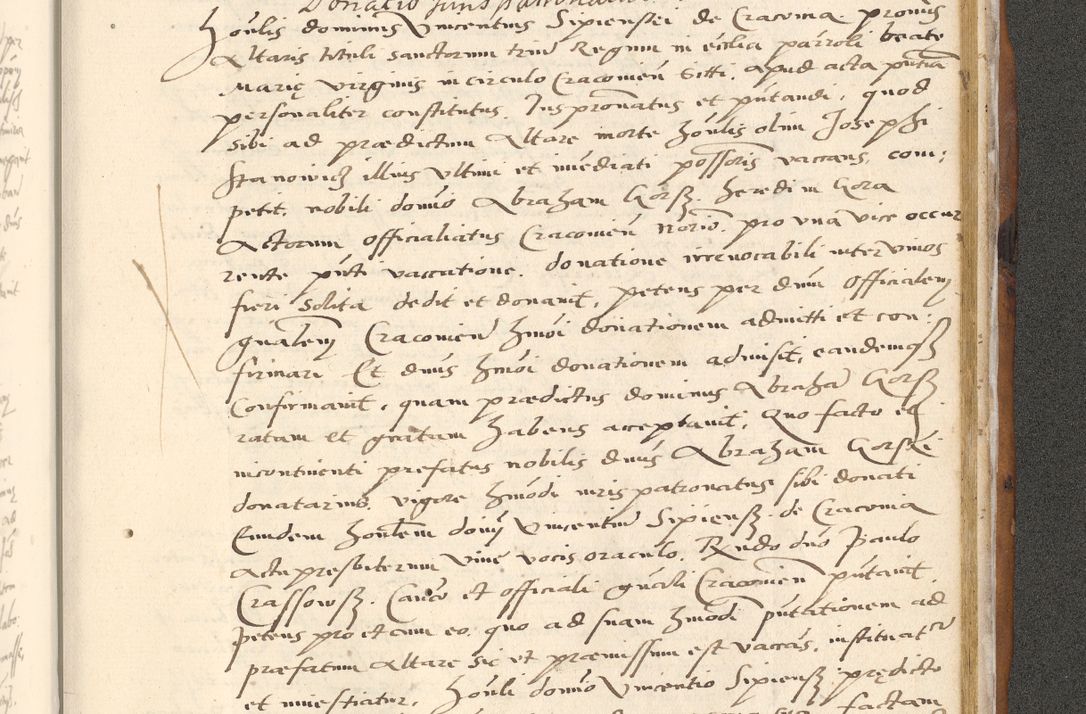 Donatio Juris patronatus
Honlis dominus Vincentius Sipienski de Cracovia provis
Altaris tituli sanctorum trium Regum in ecclia parroli beate
Marię Virginis in circulo Cracovien Sitti, apud acta pntia
personaliter constitutus, Jus pronatus et pntandi, quod
sibi ad praedictum Altare morte Honlis olim Josephi
Stanowicz illius ultimi et imediati possoris vaccans, com:
petit, nobili domino Abraham Gorsz heredi in Gora
Actorum officialiatus Cracovien Norio. pro una vice occur
rente pnti vaccatione, donatione irrevocabili inter vivos
fieri solita dedit et donavit, petens per dnum Officialem
gnalem Cracovien hmoi donationem admitti et con:
firmari Et dnus hmoi donationem admisit, eandemqz
Confirmavit, quam praedictus dominus Abraham Gorsz
ratam et gratam habens acceptavit, Quo facto
incontinenti prefatus nobilis dnus Abraham Gorski
donatarius, vigore hmodi iuris patronatus sibi donati
Eundem honlem domin Vincentium Sipiensz de Cracovia
Actu presbiterum vive vocis oraculo, Rndo dno Paulo
Crassowsz. Canco et officiali gnali Cracovien pntavit,
petens pro et cum eo, quo ad suam hmodi pntationem ad
praefatum Altare sic ut praemissum est vaccans, instituatur
et investiatur, Honli domino Vincentio Sipiensz prędicto
factam